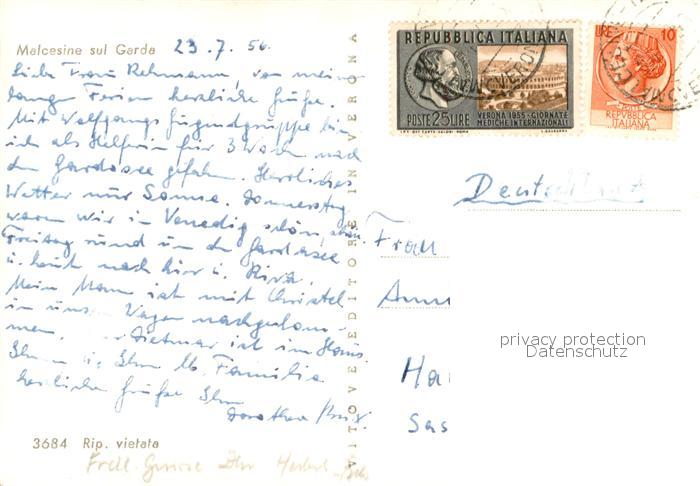 Malcesine sul Garda 23.7.56
Liebe Frau Rehmann, von meinen
langen Ferien herzliche Grüße.
Mit Wolfgangs Jugendgruppe bin
ich als Helferin für 3 Wochen nach
dem Gardasee gefahren. Herrliches
Wetter nur Sonne. Donnerstag
waren wir in Venedig schön,
Freitag rund um den Gardasee
u. heute nach hier u. Riva.
Mein Mann ist mit Christel
in uns. Wagen nachgekom-
men. Dietmar ist im Haus.
Ihnen u. Ihrer lb. Familie
herzliche Grüße Ihre
Dorothea
3684 Rip. vietata
Herbert
VITO VEDITORE IN VERONA
REPUBBLICA ITALIANA
POSTE 25 LIRE
VERONA 1955 - GIORNATE
MEDICHE INTERNAZIONALI
LIRE 10
POSTE
REPUBBLICA
ITALIANA
Deutschland
Frau
Anne
Ha
Sas
privacy protection
Datenschutz